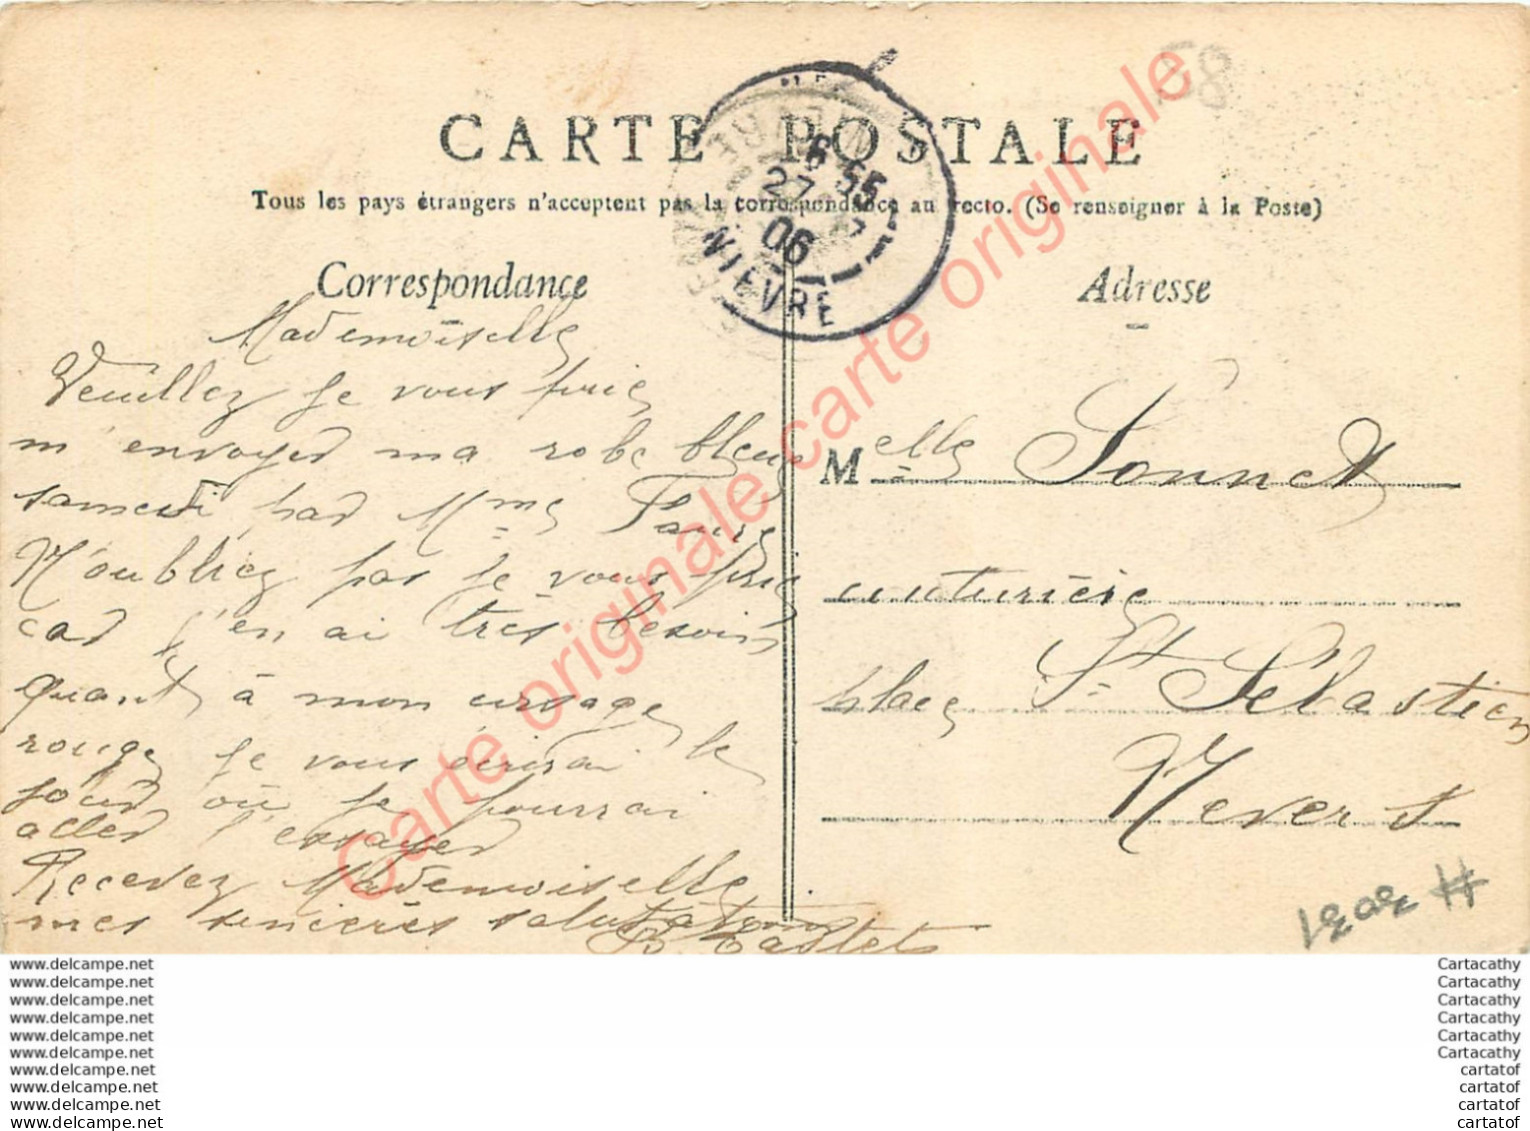 58
CARTE POSTALE
Tous les pays étrangers n'acceptent pas la correspondance au recto. (Se renseigner à la Poste)
6 55
27
06
NIEVRE
Correspondance
Mademoiselle
Veuillez je vous prie
m'envoyer ma robe bleue
samedi par Mme Faure
N'oubliez pas je vous prie
car j'en ai très besoin
quant à mon corsage
rouge je vous écrirai le
jour où je pourrai
aller l'essayer
Recevez Mademoiselle
mes sincères salutations
Adresse
Melle Sonnet
couturière
place St Sébastien
Nevers
Carte originale carte originale carte originale
www.delcampe.net
www.delcampe.net
www.delcampe.net
www.delcampe.net
www.delcampe.net
www.delcampe.net
www.delcampe.net
www.delcampe.net
www.delcampe.net
www.delcampe.net
Cartacathy
Cartacathy
Cartacathy
Cartacathy
Cartacathy
Cartacathy
cartatof
cartatof
cartatof
cartatof